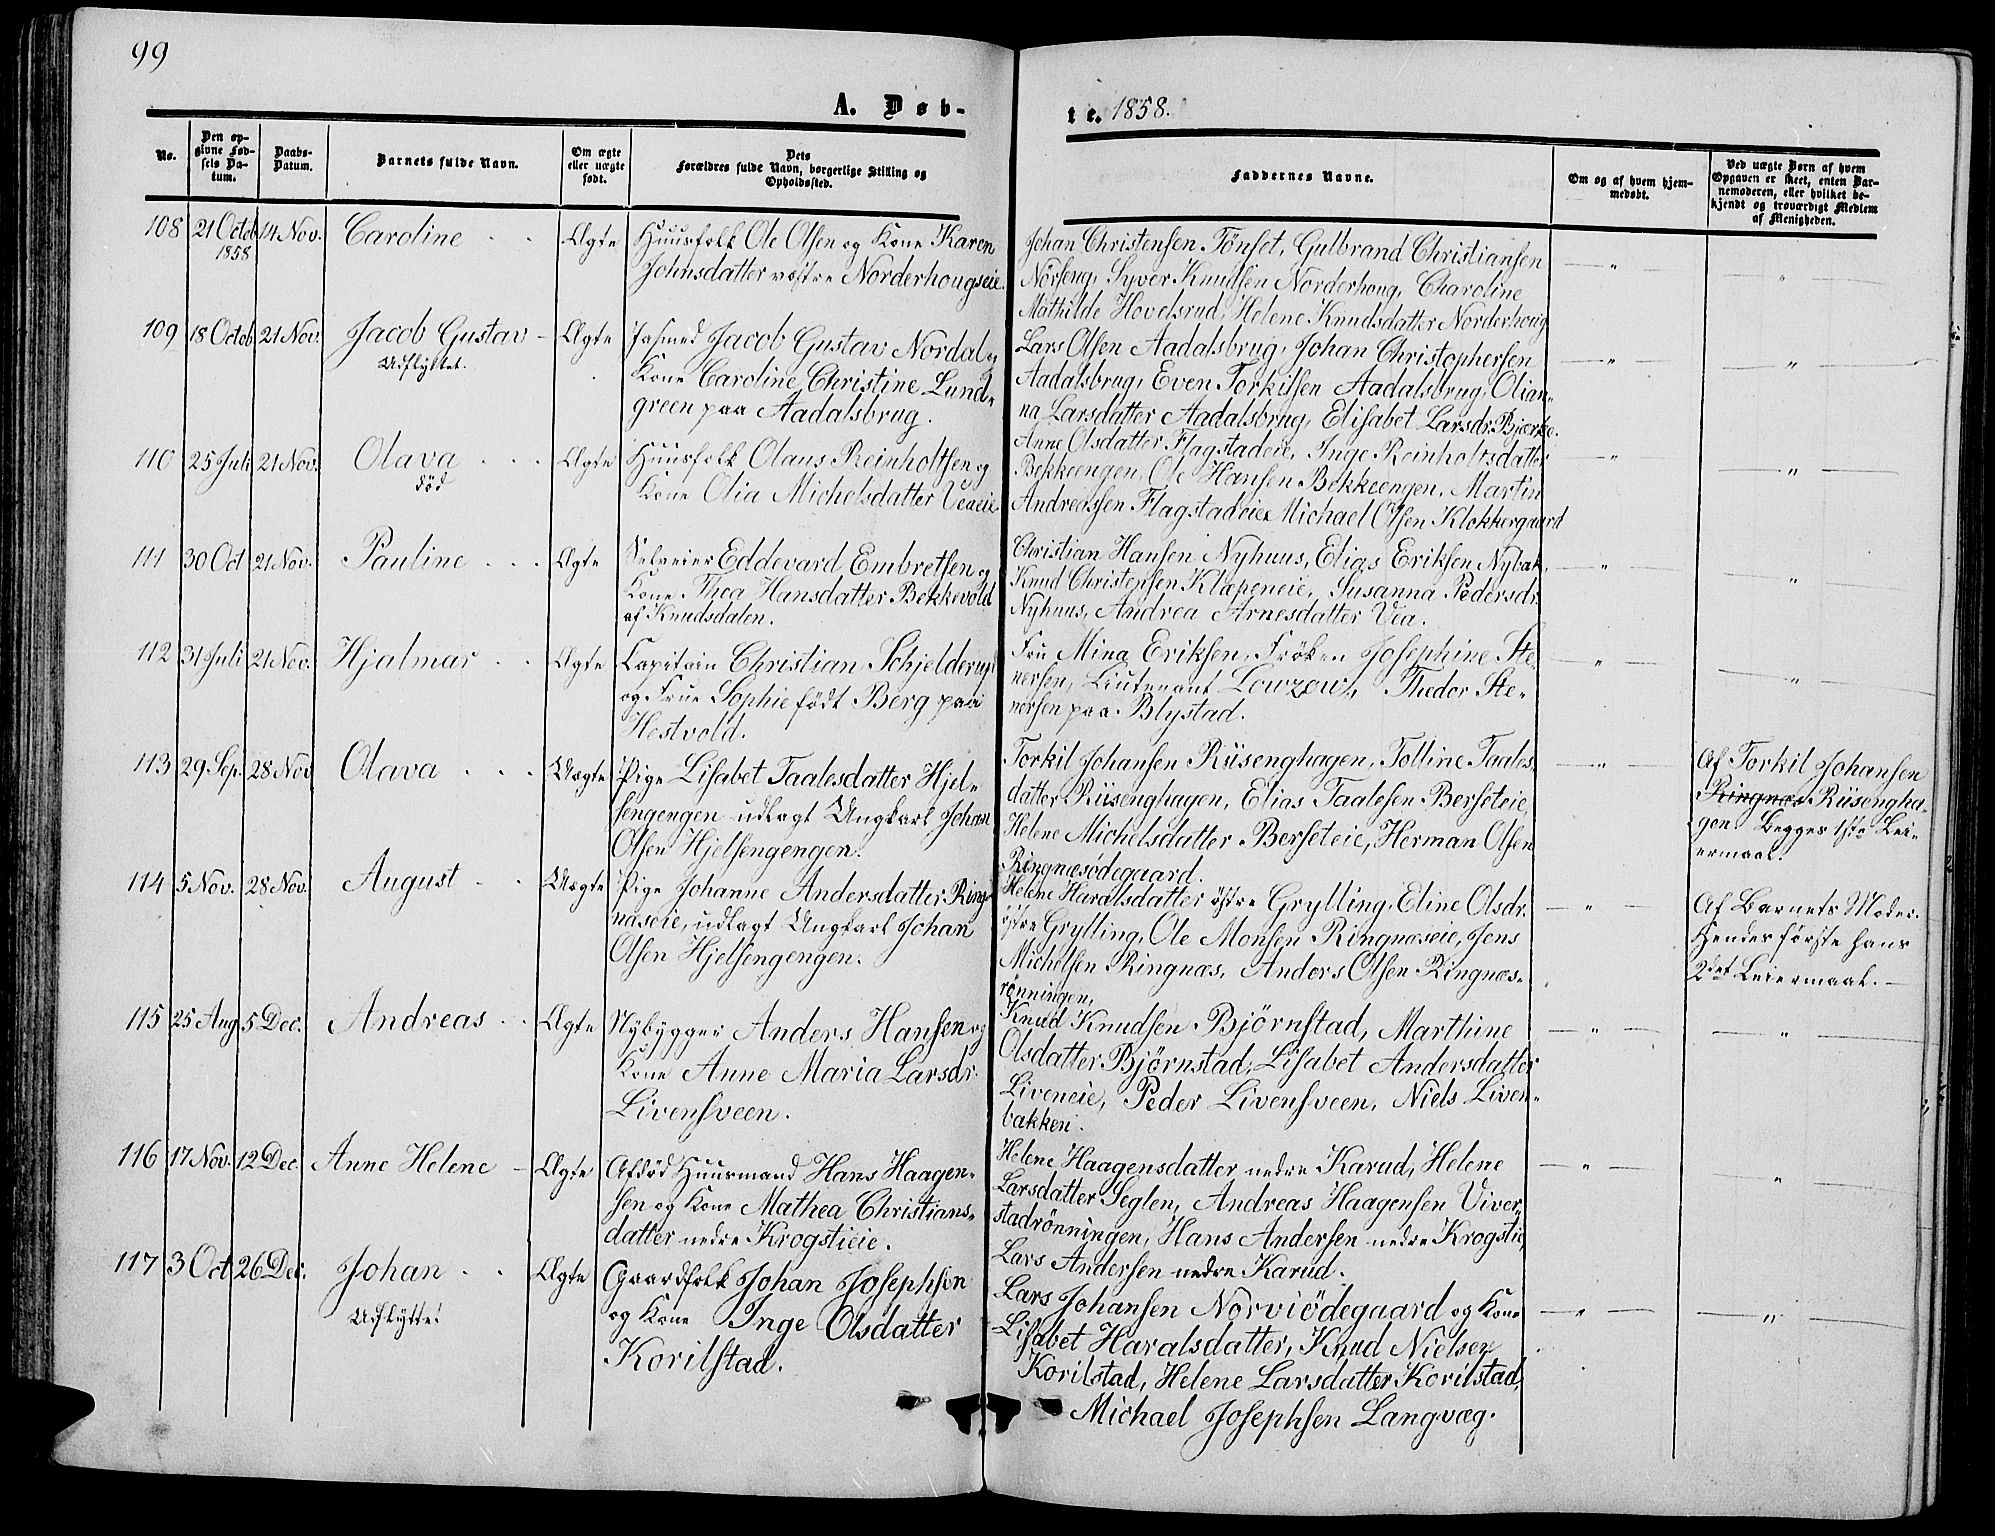 99
A. Døb-
te. 1858.
No.
Den op-
givne Fød-
sels Da-
tum.
Daabs-
Datum.
Barnets fulde Navn.
Om ægte
eller uægte
født.
Dets
Forældres fulde Navn, borgerlige Stilling og
Opholdssted.
Faddernes Navne.
Om og af hvem hjem-
medøbt.
Ved uægte Børn af hvem
Opgaven er skeet, enten Bar-
nemoderen, eller hvilket be-
kjendt og troværdigt Medlem
af Menigheden.
108 21 Octob 14 Nov. Caroline Ægte Huusfolk Ole Olsen og Kone Karen
1858
Johnsdatter vestre Norderhougseie.
Johan Christensen Tönset, Gulbrand Christiansen
Nörseng, Syver Knudsen Norderhoug, Charoline
Mathilde Hovelsrud, Helene Knudsdatter Norderhoug
109 18 Octob. 21 Nov. Jacob Gustav Ægte Jacob Gustav Nordal og
Udflyttet.
Kone Caroline Christine Lund-
green paa Aadalsbrug.
Lars Olsen Aadalsbrug, Johan Christophersen
Aadalsbrug, Even Torkilsen Aadalsbrug, Olian-
na Larsdatter Aadalsbrug, Elisabet Larsdr. Bjerke.
110 25 Juli 21 Nov. Olava Ægte Huusfolk Olaus Reinholtsen og
død
Kone Olia Michelsdatter Veneie
Anne Olsdatter Flagstadeie, Inge Reinholtsdatter
Bekkeengen, Ole Hansen Bekkeengen, Martin
Andreassen Flagstadeie Michael Olsen Klokkergaard
111 30 Oct 21 Nov. Pauline Ægte Selveier Eddevard Embretsen og
Kone Thea Hansdatter Bekkevold
af Knudsdalen.
Christian Hansen Nyhuus, Elias Eriksen Nybak,
Knud Christensen Klapeneie, Susanna Pedersdr.
Nyhuus, Andrea Arnesdatter Vea.
112 31 Juli 21 Nov. Hjalmar Ægte Capitain Christian Schjelderup
og Frue Sophie født Berg paa
Hestvold.
Fru Mina Eriksen, Frøken Josephine Ste-
nersen, Lieutenant Lowzow, Thedor Ste-
nersen paa Blystad.
113 29 Sep. 28 Nov Olava Uægte Pige Lisabet Taalesdatter Hjel-
sengengen udlagt Ungkarl Johan
Olsen Hjelsengengen.
Torkil Johansen Rüsenghagen, Tolline Taales-
datter Rüsenghagen, Elias Taalesen Berseteie,
Helene Michelsdatter Berseteie, Herman Olsen
Ringnæsödegaard.
Af Torkil Johansen
Ringnæs Rüsengha-
gen. Begges 1ste Lei-
ermaal.
114 5 Nov. 28 Nov. August Uægte Pige Johanne Andersdatter Ring-
næseie, udlagt Ungkarl Johan
Olsen Hjelsengengen.
Helene Haralsdatter østre Grylling, Eline Olsdr.
østre Grylling, Ole Monsen Ringnæseie, Jens
Michelsen Ringnæs, Anders Olsen Ringnæs-
rönningen,
Af Barnets Moder.
Hendes første hans
2det Leiermaal.
115 25 Aug. 5 Dec. Andreas Ægte Nybygger Anders Hansen og
Kone Anne Maria Larsdr.
Livensveen.
Knud Knudsen Björnstad, Marthine
Olsdatter Björnstad, Lisabet Andersdatter
Liveneie, Peder Livensveen, Niels Liven-
bakken.
116 17 Nov. 12 Dec. Anne Helene Ægte Afdød Huusmand Hans Haagen-
sen og Kone Mathea Christians-
datter nedre Krogstieie.
Helene Haagensdatter nedre Karud, Helene
Larsdatter Seglen, Andreas Haagensen Viver-
stadrönningen, Hans Andersen nedre Krogstie,
Lars Andersen nedre Karud.
117 3 Oct 26 Dec. Johan Ægte Gaardfolk Johan Josephsen
Udflytte!
og Kone Inge Olsdatter
Korilstad.
Lars Johansen Norviödegaard og Kone
Lisabet Haralsdatter, Knud Nielsen
Korilstad, Helene Larsdatter Korilstad,
Michael Josephsen Langvæg.